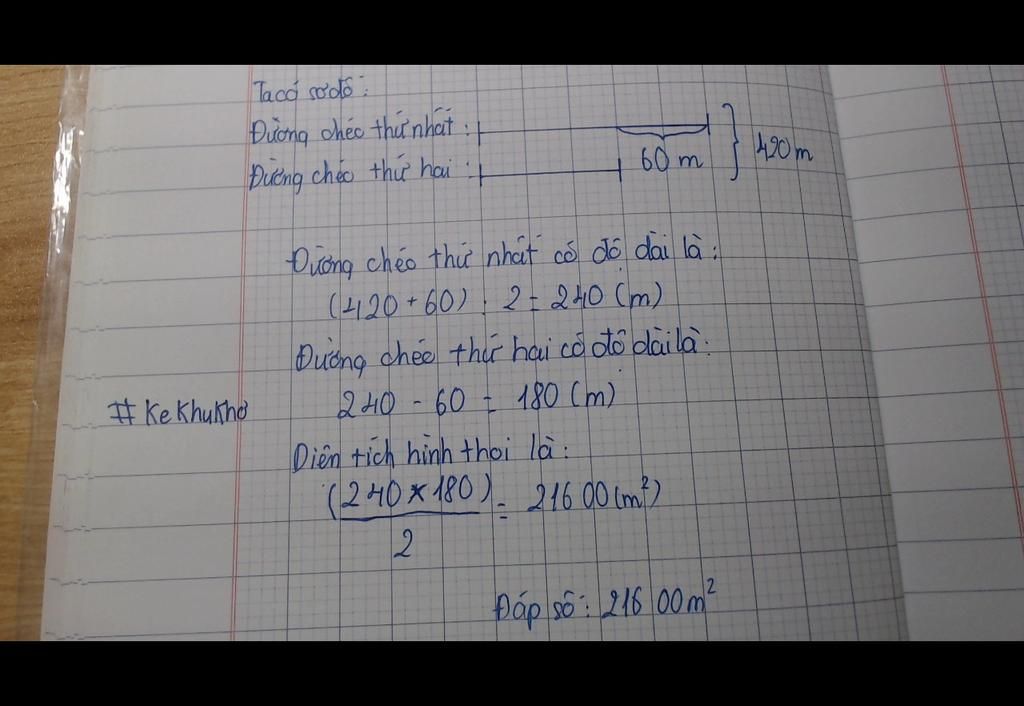 Ta có sơ đồ:
Đường chéo thứ nhất:
60 m
420 m
Đường chéo thứ hai:
Đường chéo thứ nhất có độ dài là:
(420 + 60) : 2 = 240 (m)
Đường chéo thứ hai có độ dài là:
240 - 60 = 180 (m)
#KeKhuKho
Diện tích hình thoi là:
(240 × 180)
2
= 21600 (m²)
Đáp số: 21600 m²